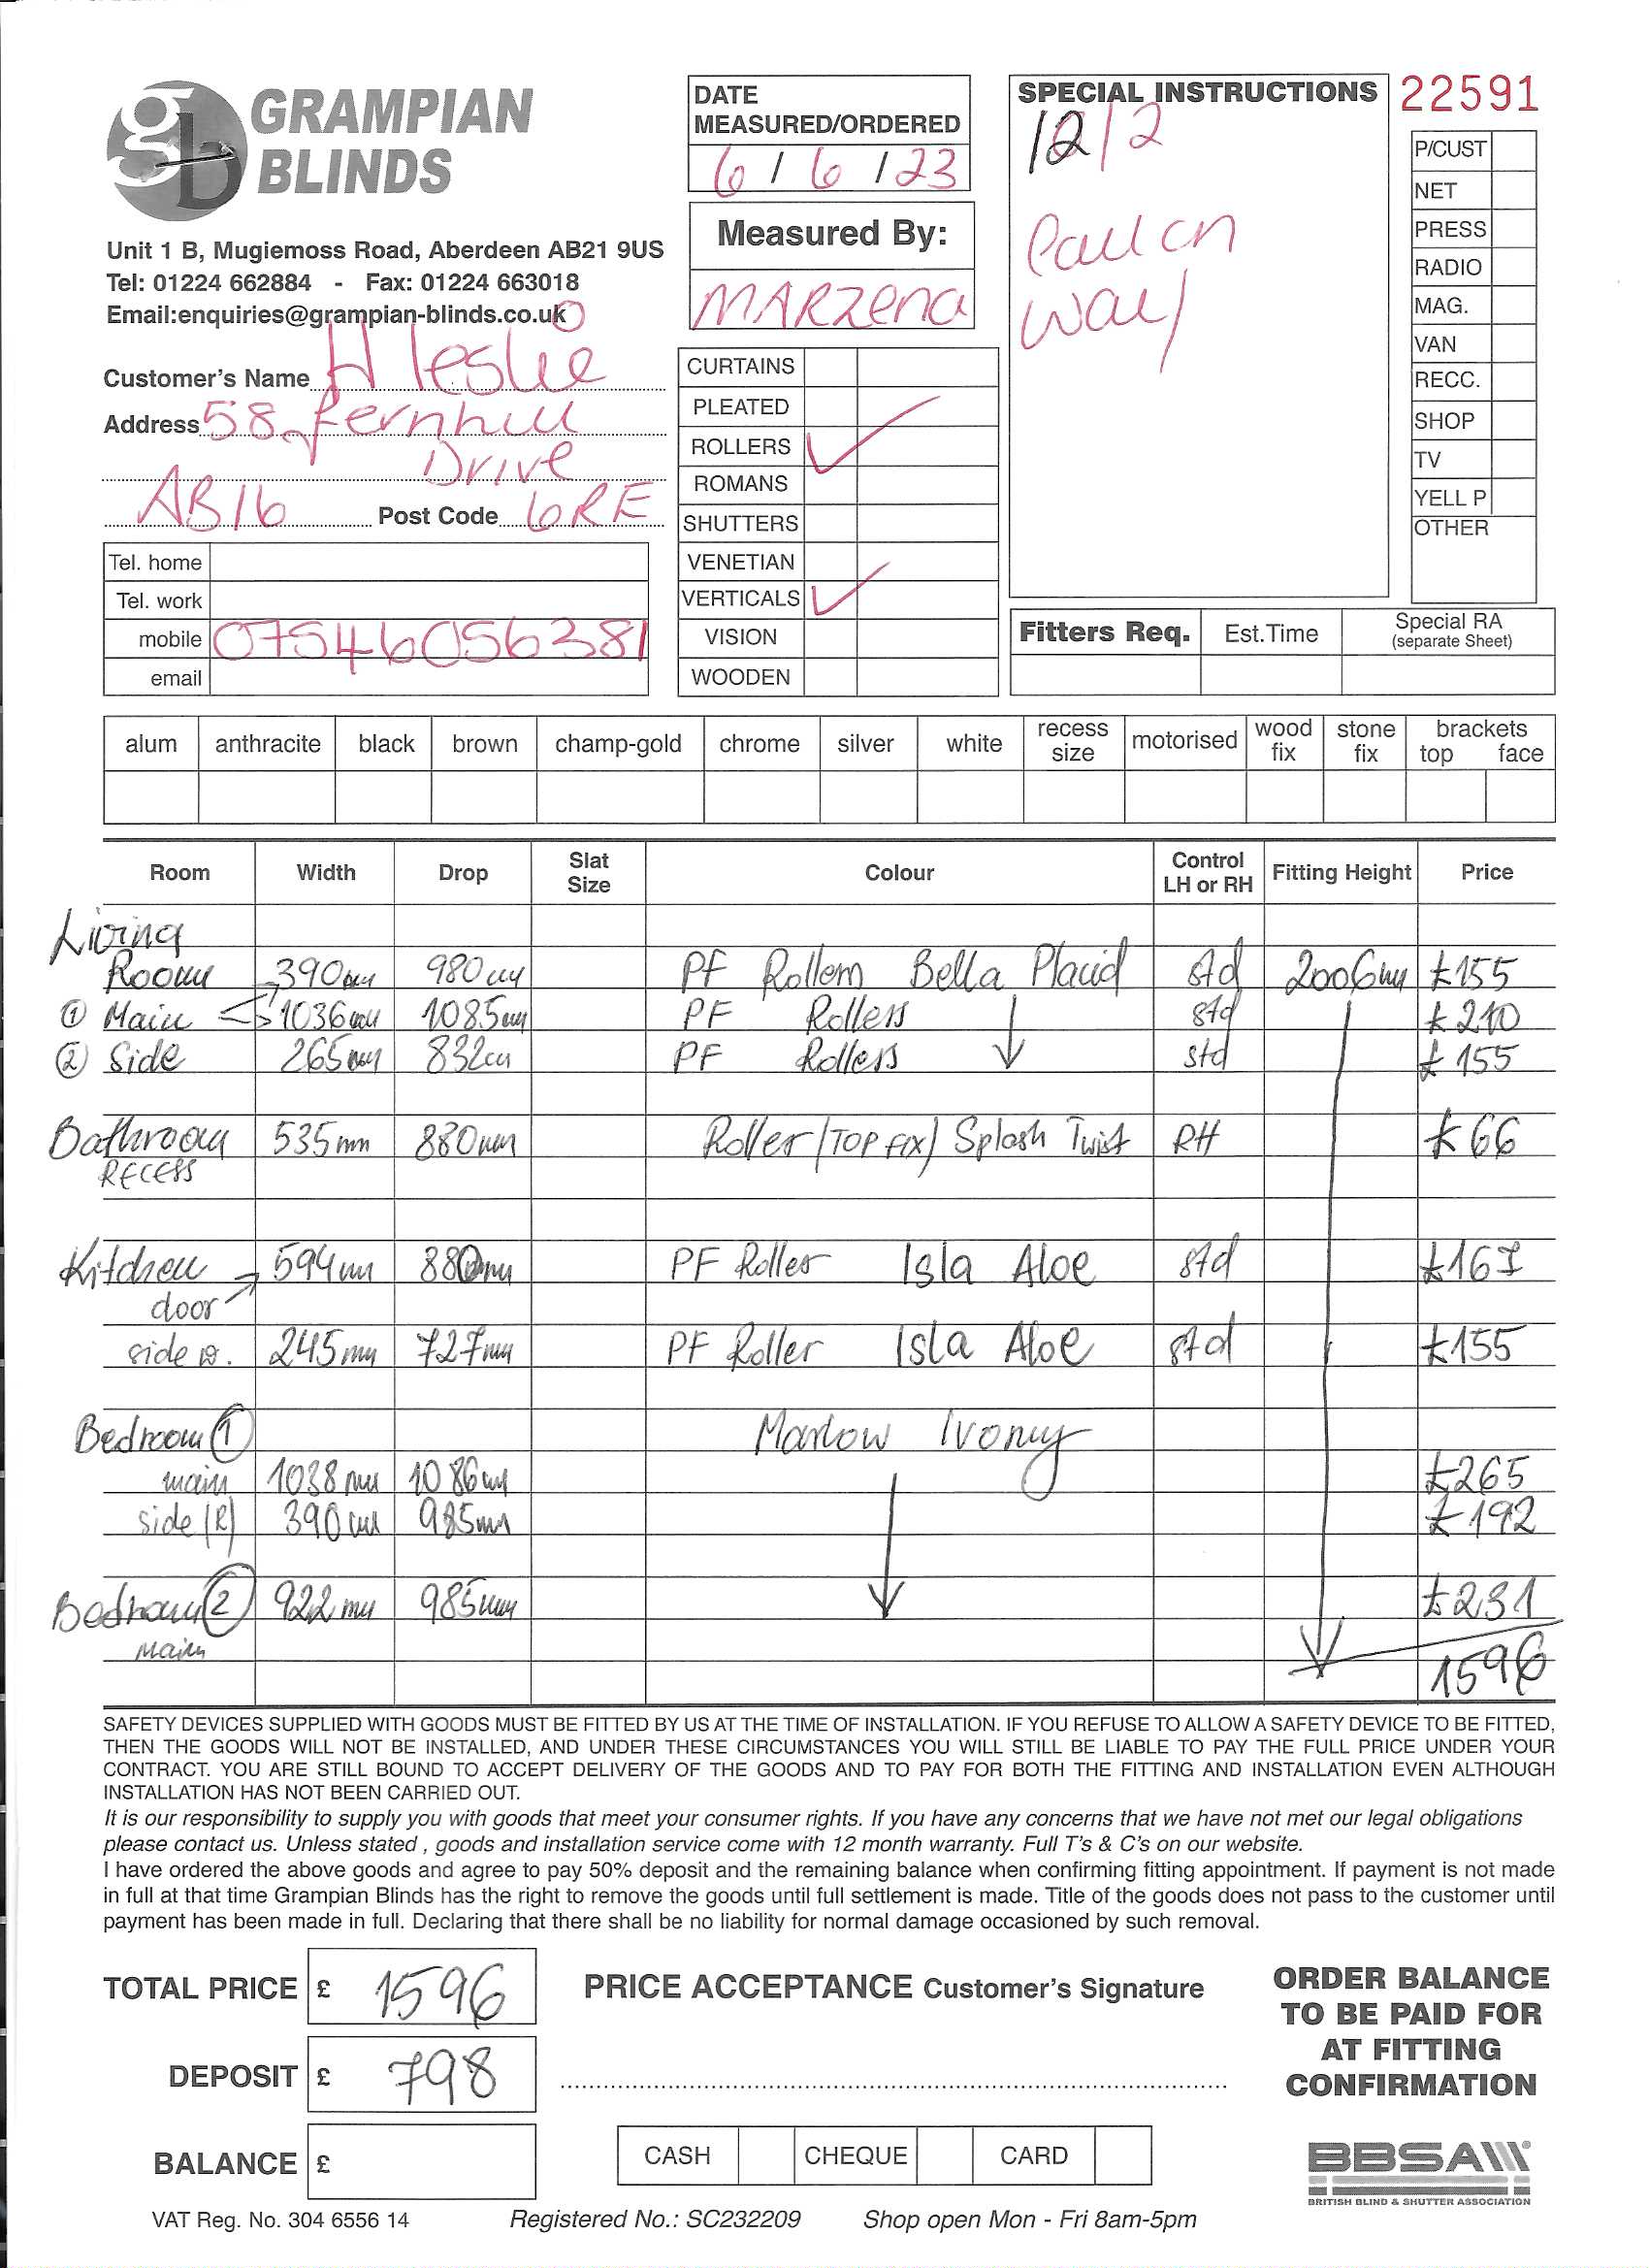 GRAMPIAN
BLINDS
Unit 1 B, Mugiemoss Road, Aberdeen AB21 9US
Tel: 01224 662884 - Fax: 01224 663018
Email:enquiries@grampian-blinds.co.uk
Customer's Name H Leslie
Address 58 fernhill
Drive
AB16 Post Code 6RE
Tel. home
Tel. work
mobile 07546056381
email
DATE
MEASURED/ORDERED
6 / 6 / 23
Measured By:
MARZENA
CURTAINS
PLEATED
ROLLERS ✓
ROMANS
SHUTTERS
VENETIAN
VERTICALS ✓
VISION
WOODEN
SPECIAL INSTRUCTIONS
12/2
Call on
way
22591
P/CUST
NET
PRESS
RADIO
MAG.
VAN
RECC.
SHOP
TV
YELL P
OTHER
Fitters Req. Est.Time Special RA
(separate Sheet)
alum anthracite black brown champ-gold chrome silver white recess size motorised wood fix stone fix brackets top face
Room Width Drop Slat Size Colour Control LH or RH Fitting Height Price
Living
Room 390mm 980mm PF Rollers Bella Placid std 2006mm £155
① Main 1036mm 1085mm PF Rollers std £210
② Side 265mm 832mm PF Rollers std £155
Bathroom 535mm 880mm Roller (TOP FIX) Splash Twist RH £66
RECESS
Kitchen 594mm 880mm PF Roller Isla Aloe std £167
door
side 245mm 727mm PF Roller Isla Aloe std £155
Bedroom ① Marlow Ivory
main 1038mm 1086mm £265
side (R) 390mm 985mm £192
Bedroom ② 922mm 985mm £231
Main
1596
SAFETY DEVICES SUPPLIED WITH GOODS MUST BE FITTED BY US AT THE TIME OF INSTALLATION. IF YOU REFUSE TO ALLOW A SAFETY DEVICE TO BE FITTED,
THEN THE GOODS WILL NOT BE INSTALLED, AND UNDER THESE CIRCUMSTANCES YOU WILL STILL BE LIABLE TO PAY THE FULL PRICE UNDER YOUR
CONTRACT. YOU ARE STILL BOUND TO ACCEPT DELIVERY OF THE GOODS AND TO PAY FOR BOTH THE FITTING AND INSTALLATION EVEN ALTHOUGH
INSTALLATION HAS NOT BEEN CARRIED OUT.
It is our responsibility to supply you with goods that meet your consumer rights. If you have any concerns that we have not met our legal obligations
please contact us. Unless stated , goods and installation service come with 12 month warranty. Full T's & C's on our website.
I have ordered the above goods and agree to pay 50% deposit and the remaining balance when confirming fitting appointment. If payment is not made
in full at that time Grampian Blinds has the right to remove the goods until full settlement is made. Title of the goods does not pass to the customer until
payment has been made in full. Declaring that there shall be no liability for normal damage occasioned by such removal.
TOTAL PRICE £ 1596
DEPOSIT £ 798
BALANCE £
PRICE ACCEPTANCE Customer's Signature
CASH CHEQUE CARD
ORDER BALANCE
TO BE PAID FOR
AT FITTING
CONFIRMATION
BBSA
BRITISH BLIND & SHUTTER ASSOCIATION
VAT Reg. No. 304 6556 14 Registered No.: SC232209 Shop open Mon - Fri 8am-5pm